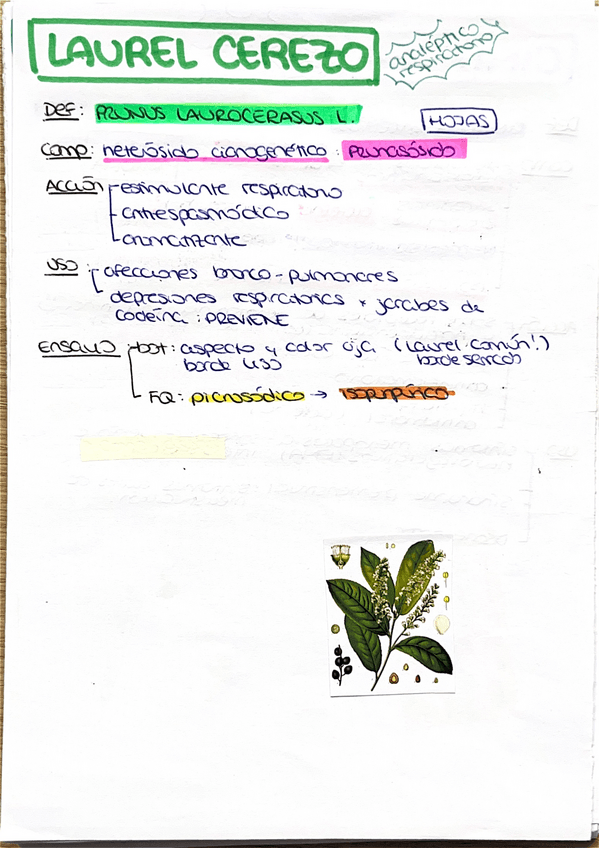 LAUREL CEREZO
analéptico
respiratorio
Def: PRUNUS LAUROCERASUS L.
HOJAS
Comp: heterósido cianogenético : PRUNASÓSIDO
ACCIÓN - estimulante respiratorio
- antiespasmódico
- aromatizante
USO - afecciones bronco-pulmonares
depresiones respiratorias x jarabes de
codeína : PREVIENE
ENSAYO - bot: aspecto y color oja (Laurel común!)
borde liso borde serrado
- FQ: picrosódico → isopurpúrico